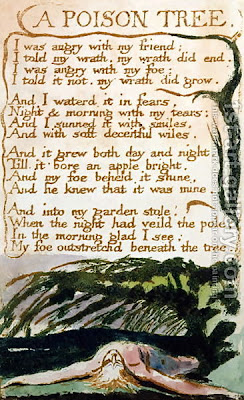 A POISON TREE.
I was angry with my friend;
I told my wrath, my wrath did end.
I was angry with my foe:
I told it not, my wrath did grow.
And I waterd it in fears,
Night & morning with my tears:
And I sunned it with smiles,
And with soft deceitful wiles.
And it grew both day and night,
Till it bore an apple bright.
And my foe beheld it shine,
And he knew that it was mine.
And into my garden stole,
When the night had veild the pole;
In the morning glad I see;
My foe outstretchd beneath the tree.